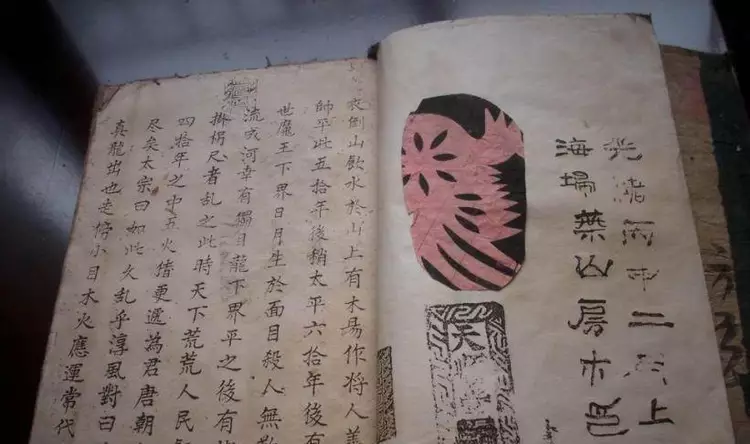 光緒丙申二上
海場山房木邑
天
衣倒山飲水於山上有木易作將人善
帥平此五拾年後稍太平六拾年後有
世魔王下界日月生於面目殺人無
流成河幸有獨目龍下界平之後有
掛拐尺者乱之此時天下荒荒人民
四拾年之中五火猪更遷為君唐朝
尽矣太宗曰如此久乱乎淳風對曰
真龍出也走小目木火應運當代